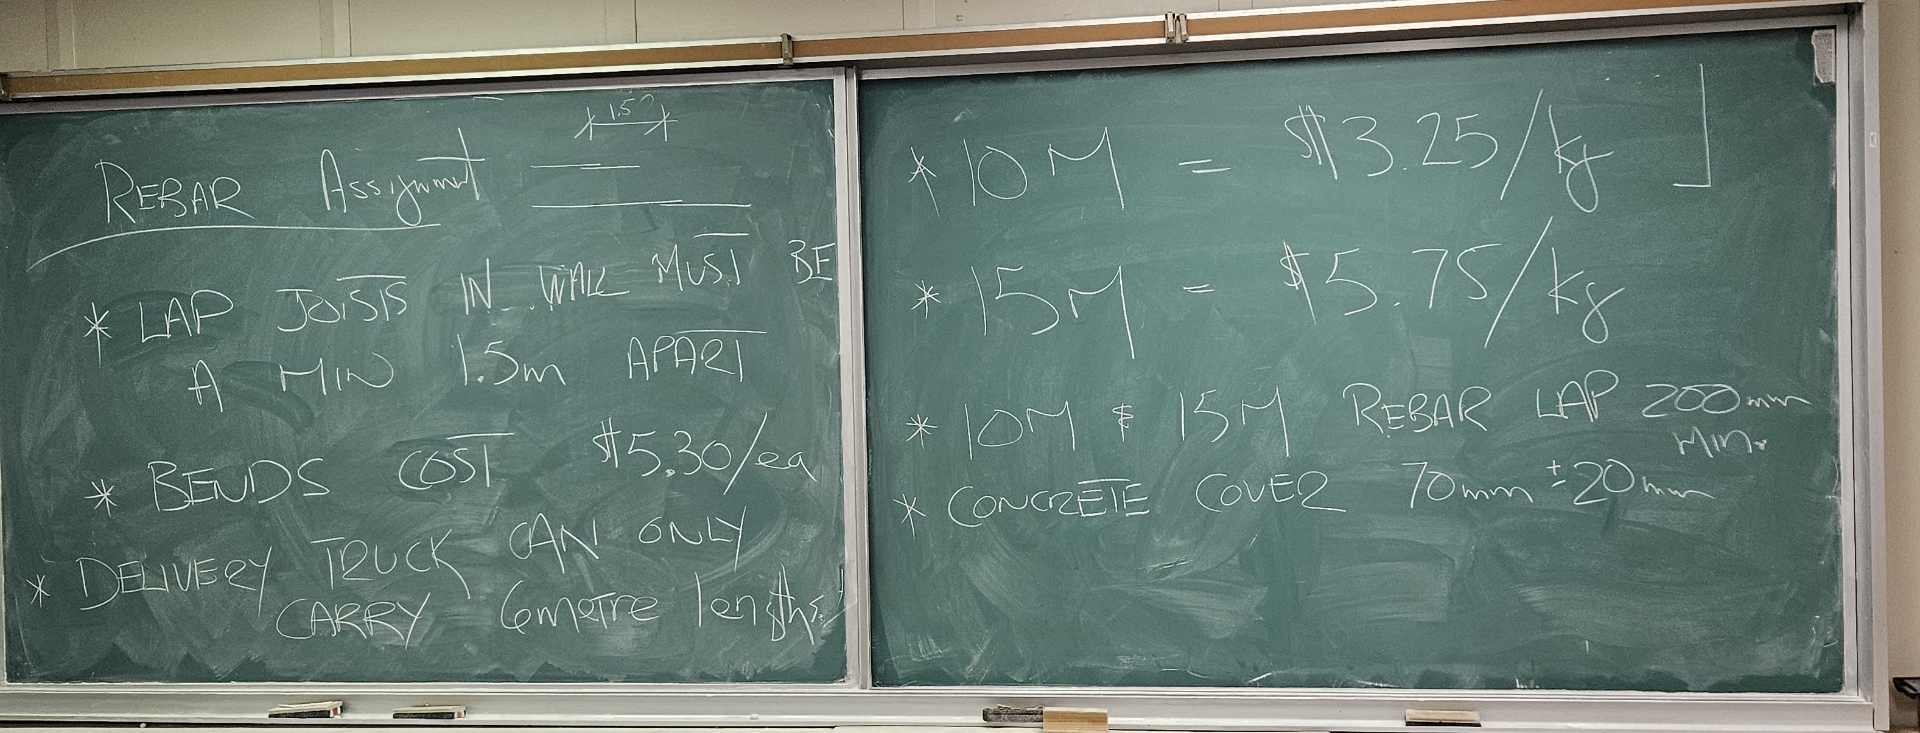 1.5?
REBAR Assignment
* LAP JOISTS IN WALL MUST BE
A MIN 1.5m APART
* BENDS COST $5.30/ea
* DELIVERY TRUCK CAN ONLY
CARRY 6metre lengths.
* 10M = $3.25/kg
* 15M = $5.75/kg
* 10M & 15M REBAR LAP 200mm
MIN.
* CONCRETE COVER 70mm ±20mm